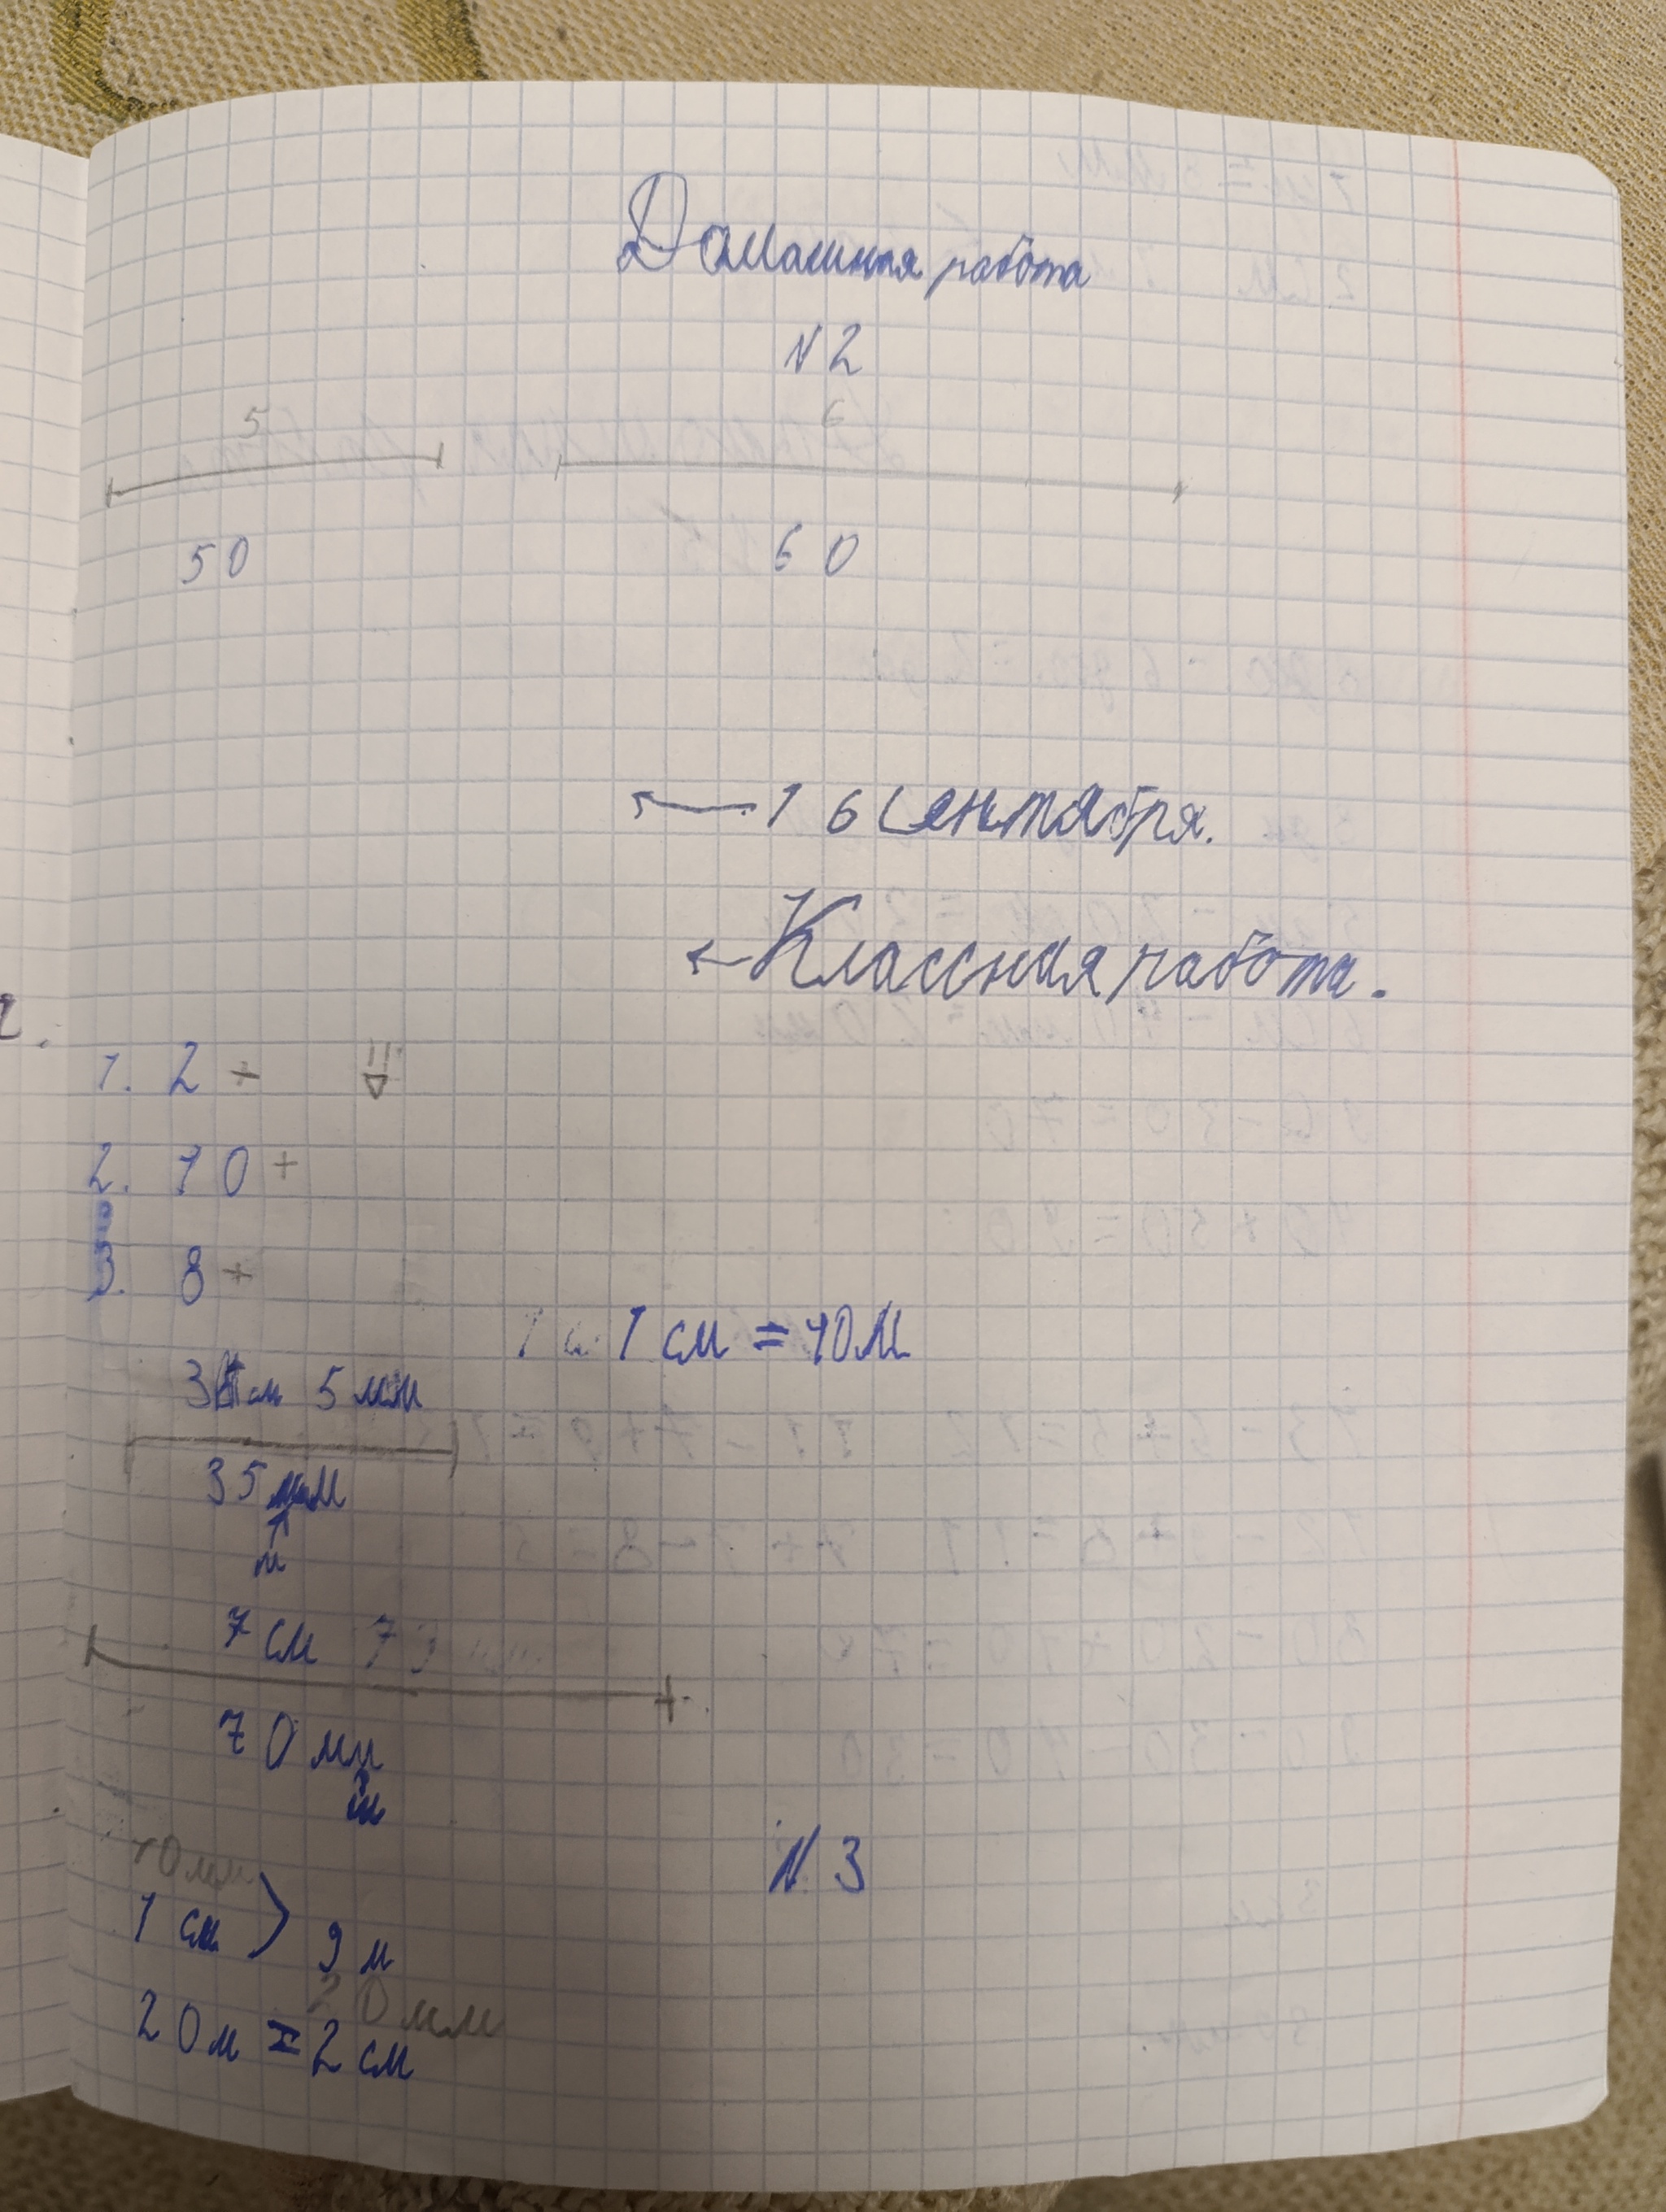 Домашная работа
N 2
5 6
50 60
16 сентября.
Классная работа.
1. 2 +
2. 10 +
3. 8 +
1 см = 10 М
3 см 5 мм
35 мм
м
7 см
70 мм
N 3
10 мм
1 см > 9 м
20 мм
20 м = 2 см